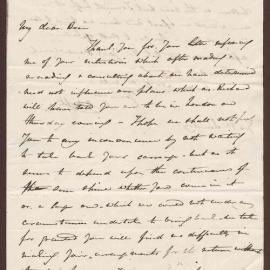 My dear Don
Thank you for your letter informing
me of your intentions which after reading
& reading & consulting about we have determined
need not influence our plans which as Richard
will have told you are to be in London on
Thursday evening — I hope we shall not put
you to any inconvenience by not waiting
to take back your carriage but as it
seems to depend upon the continuance of
fine shine whether you come in it
or a large one, which we could not under any
circumstances undertake to bring back, we take
for granted you will find no difficulty in
making your arrangements for the return without